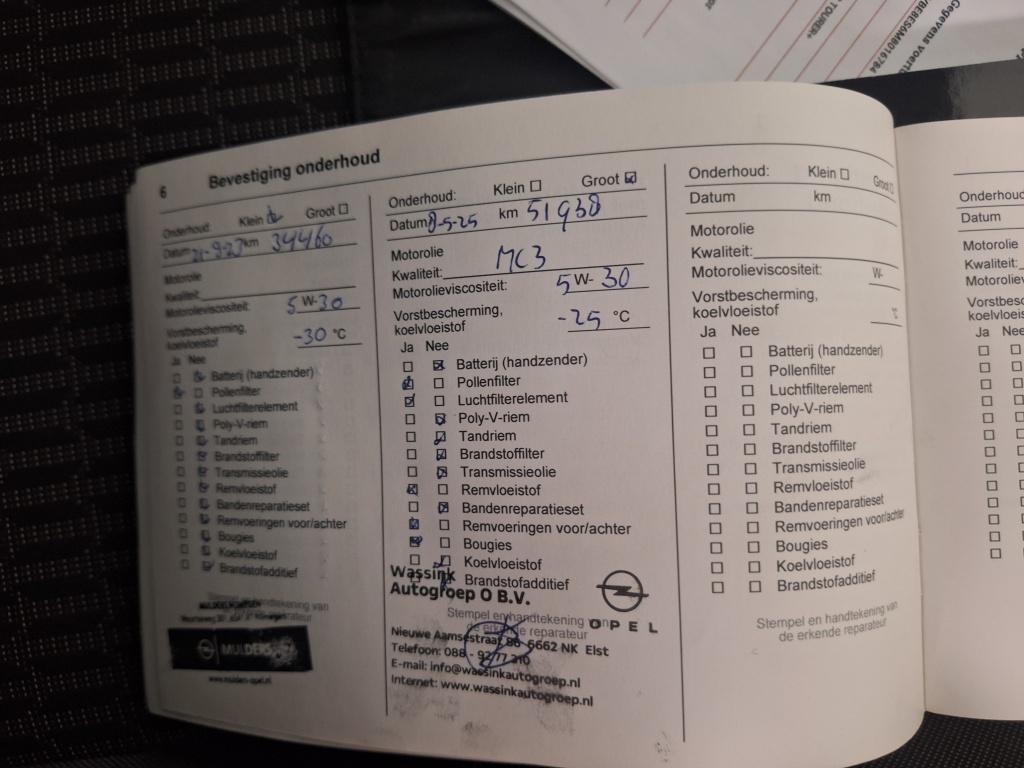 Gegevens voertu
TOURER+
6 Bevestiging onderhoud
Onderhoud: Klein Groot
Datum 21-9-23 km 34460
Motorolie
Kwaliteit:
Motorolieviscositeit: 5 W-30
Vorstbescherming,
koelvloeistof -30 °C
Ja Nee
Batterij (handzender)
Pollenfilter
Luchtfilterelement
Poly-V-riem
Tandriem
Brandstoffilter
Transmissieolie
Remvloeistof
Bandenreparatieset
Remvoeringen voor/achter
Bougies
Koelvloeistof
Brandstofadditief
Stempel en handtekening van
de erkende reparateur
MULDERS
www.mulders-opel.nl
Onderhoud: Klein Groot
Datum 8-5-25 km 51938
Motorolie
Kwaliteit: MC3
Motorolieviscositeit: 5 W- 30
Vorstbescherming,
koelvloeistof -25 °C
Ja Nee
Batterij (handzender)
Pollenfilter
Luchtfilterelement
Poly-V-riem
Tandriem
Brandstoffilter
Transmissieolie
Remvloeistof
Bandenreparatieset
Remvoeringen voor/achter
Bougies
Koelvloeistof
Brandstofadditief
Wassink
Autogroep O B.V.
Stempel en handtekening van
de erkende reparateur
OPEL
Nieuwe Aamsestraat 86 6662 NK Elst
Telefoon: 088 - 9277 310
E-mail: info@wassinkautogroep.nl
Internet: www.wassinkautogroep.nl
Onderhoud: Klein Groot
Datum km
Motorolie
Kwaliteit:
Motorolieviscositeit: W-
Vorstbescherming,
koelvloeistof °C
Ja Nee
Batterij (handzender)
Pollenfilter
Luchtfilterelement
Poly-V-riem
Tandriem
Brandstoffilter
Transmissieolie
Remvloeistof
Bandenreparatieset
Remvoeringen voor/achter
Bougies
Koelvloeistof
Brandstofadditief
Stempel en handtekening van
de erkende reparateur
Onderhoud
Datum
Motorolie
Kwaliteit:
Motorolievi
Vorstbesc
koelvloeis
Ja Nee